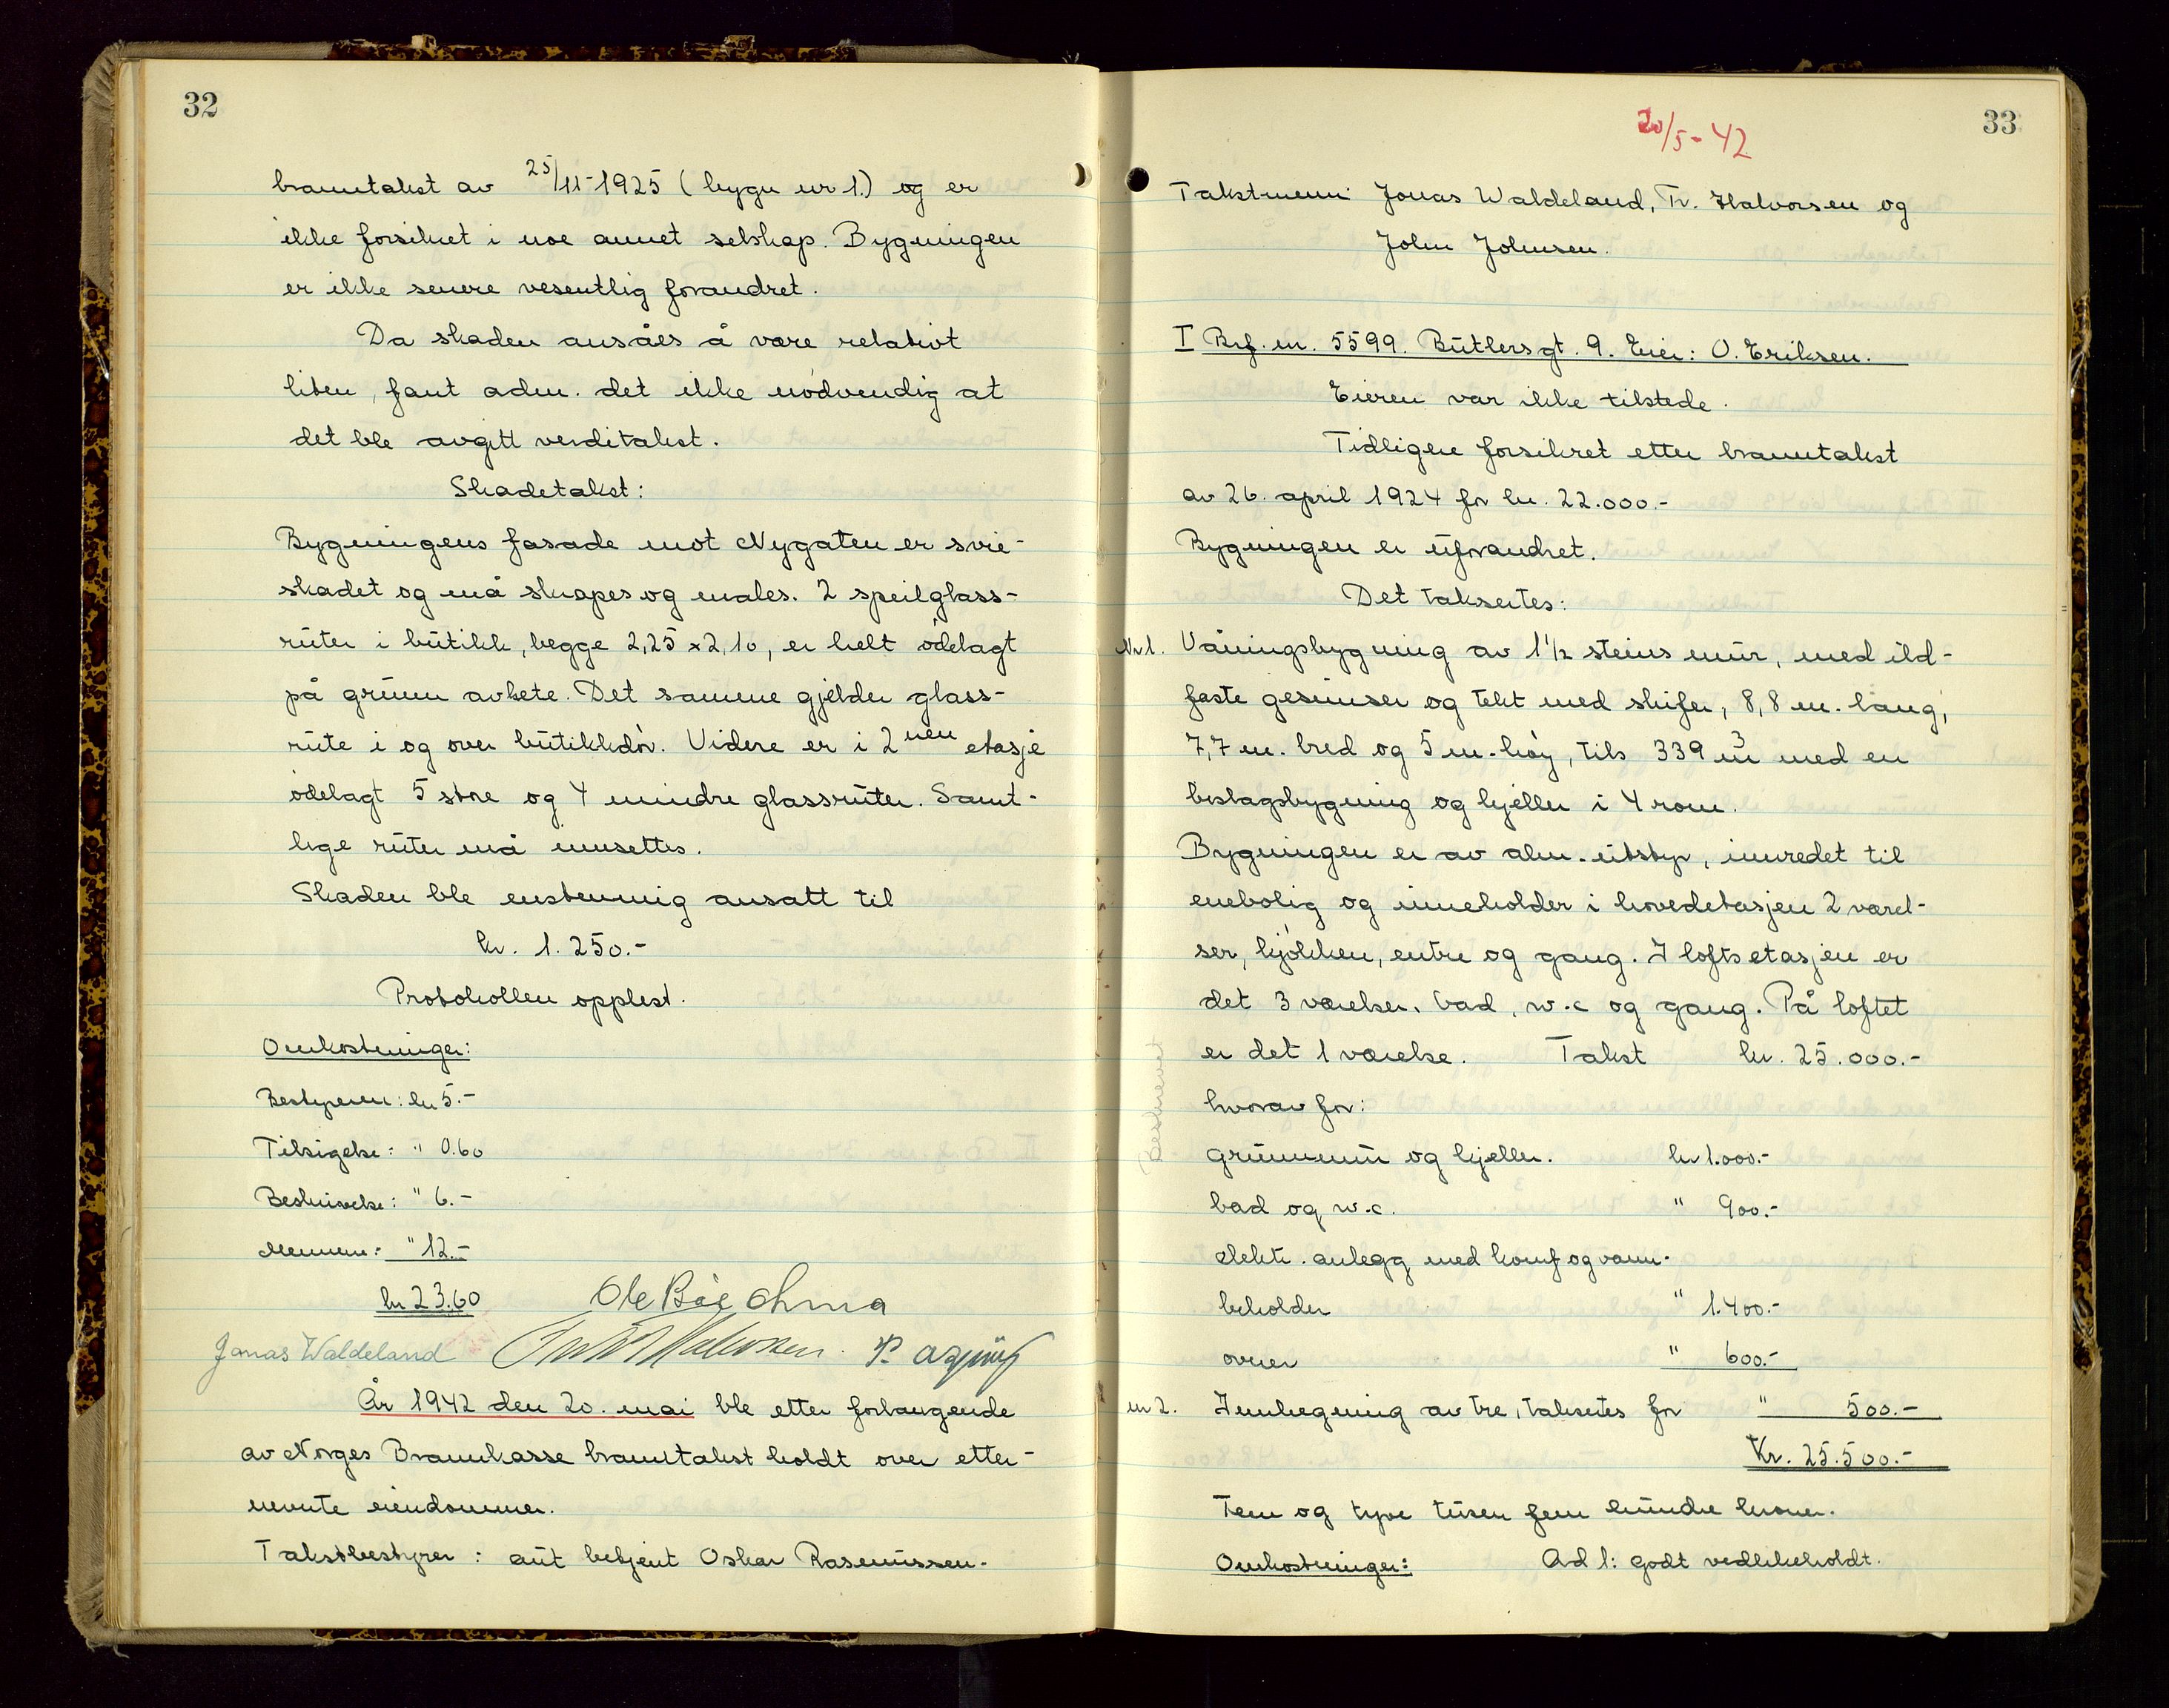 32
branntakst av 25/11-1925 (bygn nr 1.) og er
ikke forsikret i noe annet selskap. Bygningen
er ikke senere vesentlig forandret.
Da skaden ansåes å være relativt
liten, fant adm. det ikke nødvendig at
det ble avgitt verditakst.
Skadetakst:
Bygningens fasade mot Nygaten er svie-
skadet og må skrapes og males. 2 speilglass-
ruter i butikk, begge 2,25 x 2,10, er helt ødelagt
på grunn av hete. Det samme gjelder glass-
rute i og over butikkdør. Videre er i 2nen etasje
ødelagt 5 store og 4 mindre glassruter. Samt-
lige ruter må innsettes.
Skaden ble enstemmig ansatt til
kr. 1.250.-
Protokollen opplest.
Omkostninger:
Bestyreren: kr 5.-
Tilsigelse: " 0.60
Beskrivelse: " 6.-
Mennene: " 12.-
kr 23.60
Jonas Waldeland
År 1942 den 20. mai ble etter forlangende
av Norges Brannkasse branntakst holdt over etter-
nevnte eiendommer.
Takstbestyrer: aut betjent Oskar Rasmussen.
33
20/5-42
Takstmenn: Jonas Waldeland, Tr. Halvorsen og
John Johnsen.
I Brf. nr. 5599. Butlersgt. 9. Eier: O. Eriksen.
Eieren var ikke tilstede.
Tidligere forsikret etter branntakst
av 26. april 1924 for kr. 22.000.-
Bygningen er uforandret.
Det takseres:
Nr 1. Våningsbygning av 1 1/2 steins mur, med ild-
faste gesimser og tekt med skifer, 8,8 m. lang,
7,7 m. bred og 5 m. høy, tils 339 m3 med en
bislagsbygning og kjeller i 4 rom.
Bygningen er av alm. utstyr, innredet til
enebolig og inneholder i hovedetasjen 2 værel-
ser, kjøkken, entre og gang. I loftsetasjen er
det 3 værelser, bad, w.c og gang. På loftet
er det 1 værelse. Takst kr. 25.000.-
Beskrevet
hvorav for:
grunnmur og kjeller. kr 1.000.-
bad og w.c. " 900.-
elektr. anlegg med komf og vann-
beholder " 1.400.-
ovner " 600.-
nr 2. Innhegning av tre, takseres for " 500.-
Kr. 25.500.-
Fem og tyve tusen fem hundre kroner.
Omkostninger: Ad 1: godt vedlikeholdt.